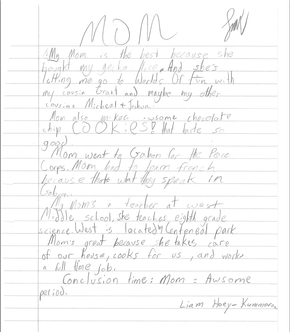 MOM
My Mom is the best because she
bought my gecko Alice. And she's
letting me go to Worlds Of Fun with
my cousin Grant and maybe my other
cousins Micheal + Julia.
Mom also makes awsome chocolate
chip COOKiES! that taste so
good
Mom went to Gabon for the Peace
Corps. Mom had to learn french
because thats what they speak in
Gabon.
My Mom's a teacher at West
Middle school, She teaches eighth grade
science. West is located in Centeneal park
Mom's great because she takes care
of our house, cooks for us, and works
a full time job.
Conclusion time: Mom = Awsome
period.
Liam Hoey-